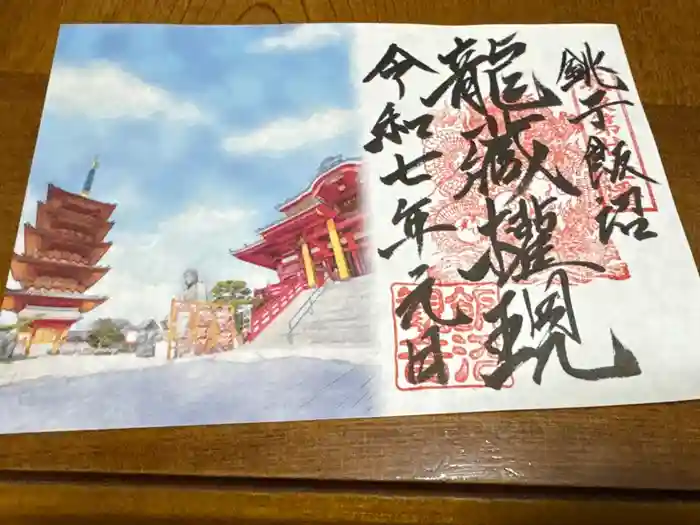 銚子飯沼
龍蔵權現
令和七年元日